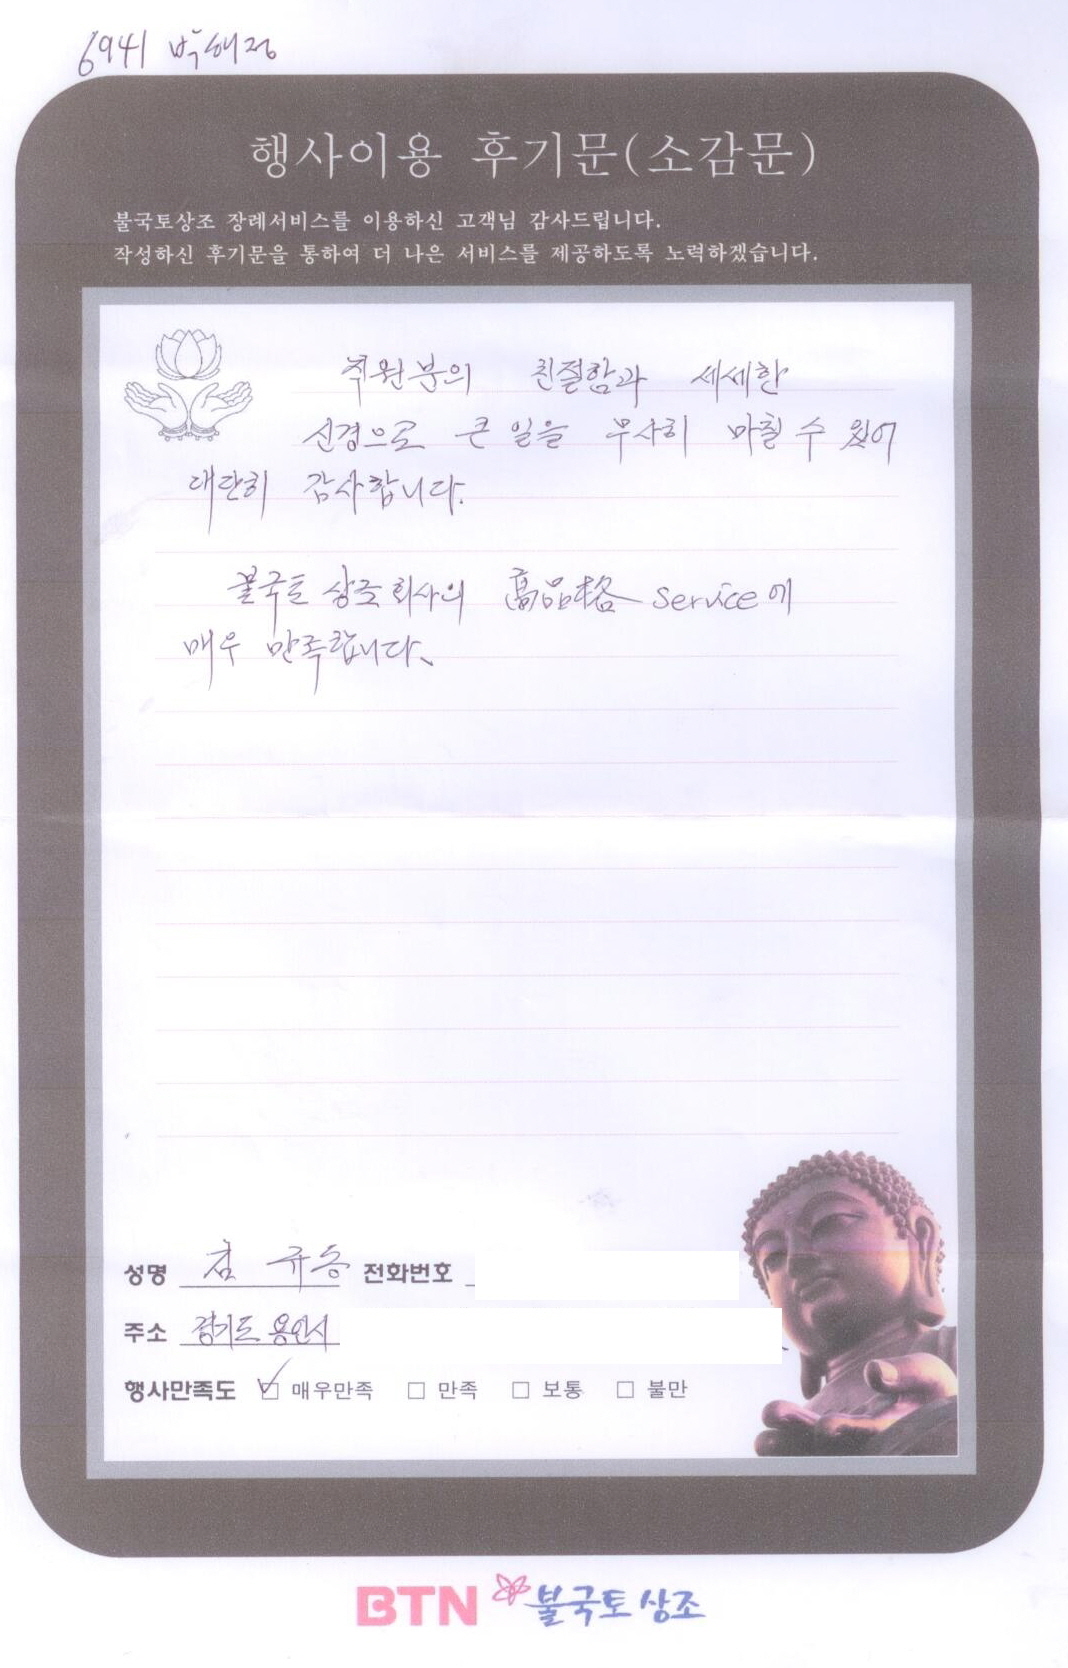 6941 박해정
행사이용 후기문(소감문)
불국토상조 장례서비스를 이용하신 고객님 감사드립니다.
작성하신 후기문을 통하여 더 나은 서비스를 제공하도록 노력하겠습니다.
직원분의 친절함과 세세한
신경으로 큰 일을 무사히 마칠 수 있어
대단히 감사합니다.
불국토 상조 회사의 高品格 service에
매우 만족합니다.
성명 김규승 전화번호
주소 경기도 용인시
행사만족도 ☑ 매우만족 □ 만족 □ 보통 □ 불만
BTN 불국토상조